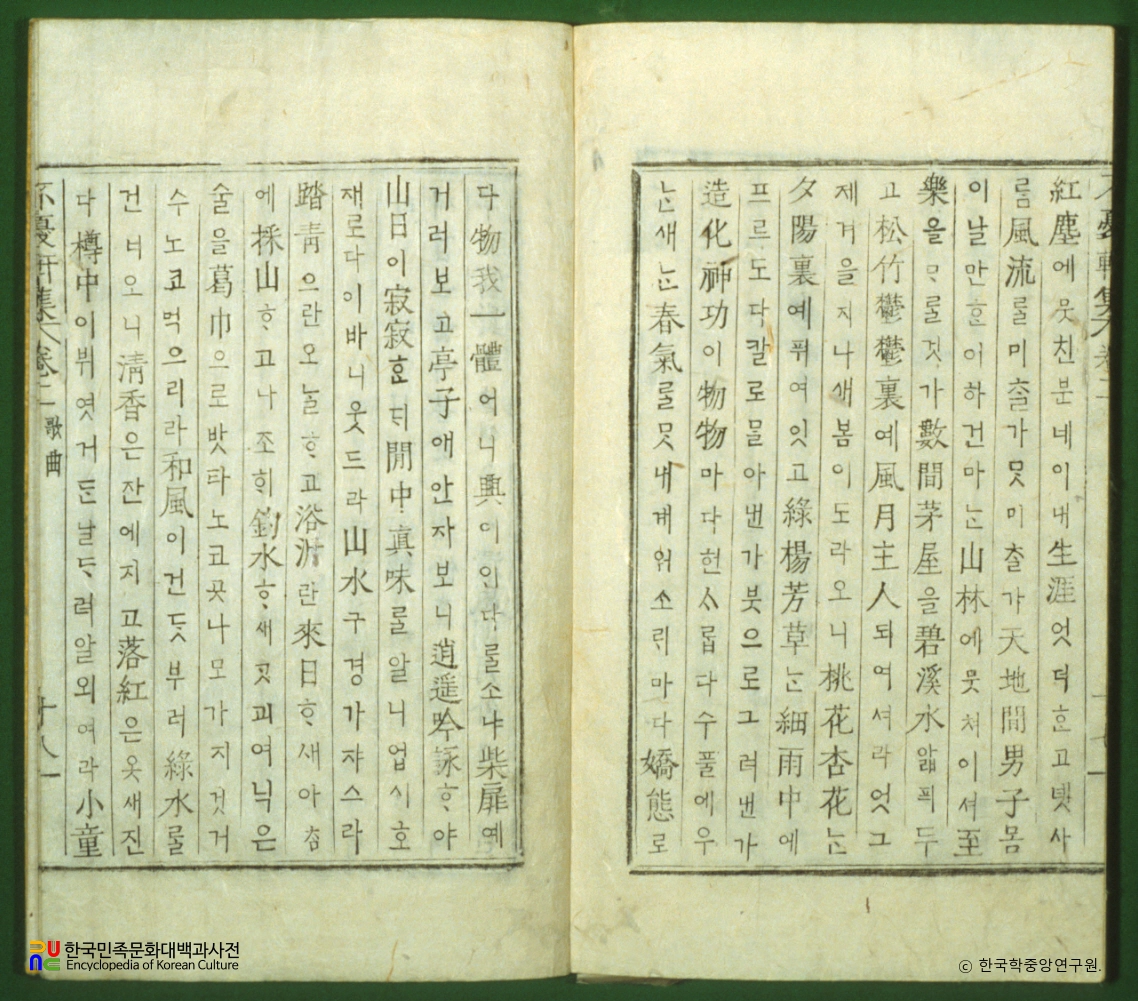 不憂軒集 卷二 十七
紅塵에뭇친분네이내生涯엇더ᄒᆞᆫ고녯사
ᄅᆞᆷ風流ᄅᆞᆯ미ᄎᆞᆯ가ᄆᆞᆺ미ᄎᆞᆯ가天地間男子몸
이날만ᄒᆞᆫ이하건마ᄂᆞᆫ山林에뭇쳐이셔至
樂을ᄆᆞᄅᆞᆯ것가數間茅屋을碧溪水앏픠두
고松竹鬱鬱裏예風月主人되여셔라엇그
제겨을지나새봄이도라오니桃花杏花ᄂᆞᆫ
夕陽裏예퓌여잇고綠楊芳草ᄂᆞᆫ細雨中에
프르도다칼로ᄆᆞᆯ아낸가붓으로그려낸가
造化神功이物物마다헌ᄉᆞ롭다수풀에우
ᄂᆞᆫ새ᄂᆞᆫ春氣ᄅᆞᆯᄆᆞᆺ내계워소ᄅᆡ마다嬌態로
다物我一體어니興이ᄋᆡ다ᄅᆞᆯ소냐柴扉예
거러보고亭子애안자보니逍遥吟詠ᄒᆞ야
山日이寂寂ᄒᆞᆫᄃᆡ閒中眞味ᄅᆞᆯ알니업시호
재로다이바니웃드라山水구경가쟈스라
踏靑으란오ᄂᆞᆯᄒᆞ고浴沂란來日ᄒᆞ새아ᄎᆞᆷ
에採山ᄒᆞ고나조ᄒᆡ釣水ᄒᆞ새ᄀᆞᆺ괴여닉은
술을葛巾으로밧타노코곳나모가지것거
수노코먹으리라和風이건ᄃᆞᆺ부러綠水ᄅᆞᆯ
건너오니淸香은잔에지고落紅은옷새진
다樽中이뷔엿거ᄃᆞᆫ날ᄃᆞ려알외여라小童
不憂軒集 卷二 歌曲 十八
한국민족문화대백과사전
Encyclopedia of Korean Culture
ⓒ 한국학중앙연구원.